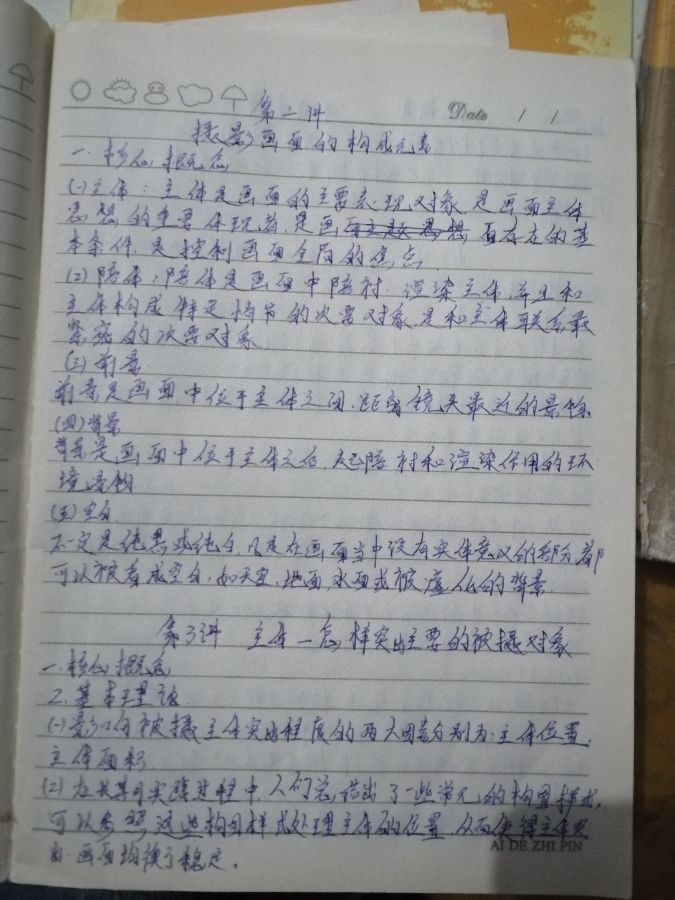 第二讲
Date / /
摄影画面的构成元素
一.核心概念
(一)主体：主体是画面的主要表现对象,是画面主体
思想的重要体现者,是画面主题思想 面存在的基
本条件,是控制画面全局的焦点
(2)陪体：陪体是画面中陪衬、渲染主体,并且和
主体构成特定情节的次要对象,是和主体联系最
紧密的次要对象
(三)前景
前景是画面中位于主体之间,距离镜头最近的景物
(四)背景
背景是画面中位于主体之后,起陪衬和渲染作用的环
境景物
(五)空白
不一定是纯黑或纯白,凡是在画面当中没有实体意义的部分,都
可以被看成空白,如天空、地面,水面或被虚化的背景.
第3讲 主体一怎样突出主要的被摄对象
一.核心概念
2.基本理论
(一)影响被摄主体突出程度的两大因素分别为：主体位置.
主体面积.
(2)在长期实践过程中,人们总结出了一些常见的构图样式,
可以参照这些构图样式处理主体的位置,从而使得主体突
出.画面均衡了稳定.
AI DE ZHI PIN